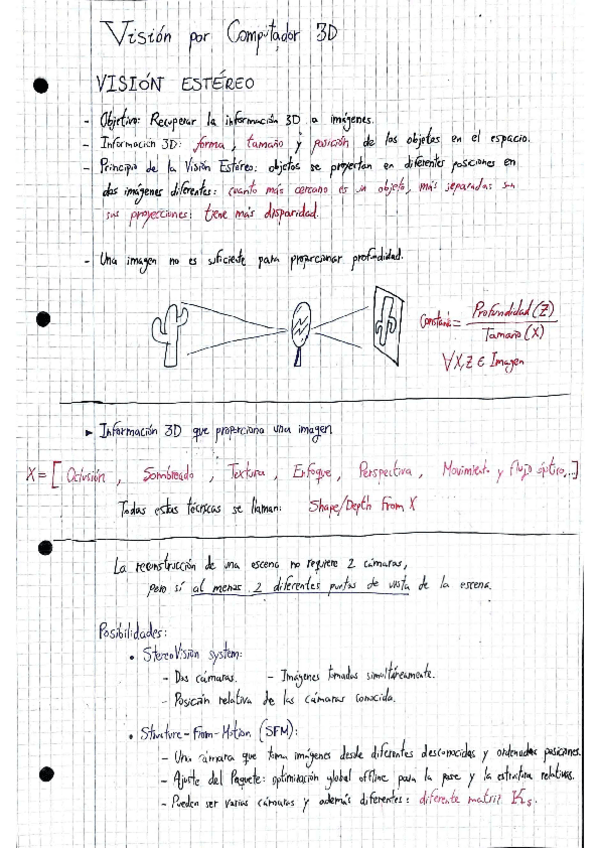 Visión por Computador 3D
VISIÓN ESTÉREO
- Objetivo: Recuperar la información 3D a imágenes.
- Información 3D: forma, tamaño y posición de los objetos en el espacio.
- Principio de la Visión Estéreo: objetos se proyectan en diferentes posiciones en
dos imágenes diferentes: cuanto más cercano es un objeto, más separadas son
sus proyecciones: tiene más disparidad.
- Una imagen no es suficiente para proporcionar profundidad.
Constante = Profundidad (Z) / Tamaño (X)
∀ X,Z ∈ Imagen
► Información 3D que proporciona una imagen
X = [ Oclusión, Sombreado, Textura, Enfoque, Perspectiva, Movimiento y flujo óptico,...]
Todas estas técnicas se llaman: Shape/Depth From X
La reconstrucción de una escena no requiere 2 cámaras,
pero sí al menos 2 diferentes puntos de vista de la escena.
Posibilidades:
• Stereo Vision system:
- Dos cámaras. - Imágenes tomadas simultáneamente.
- Posición relativa de las cámaras conocida.
• Structure-From-Motion (SFM):
- Una cámara que toma imágenes desde diferentes desconocidas y ordenadas posiciones.
- Ajuste del Paquete: optimización global offline para la pose y la estructura relativas.
- Pueden ser varias cámaras y además diferentes: diferente matriz Ks.